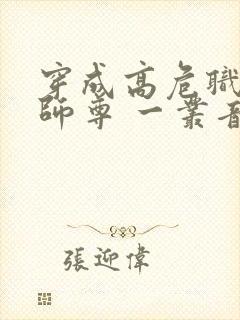 穿成高危職
師尊 一叢音
張迎偉